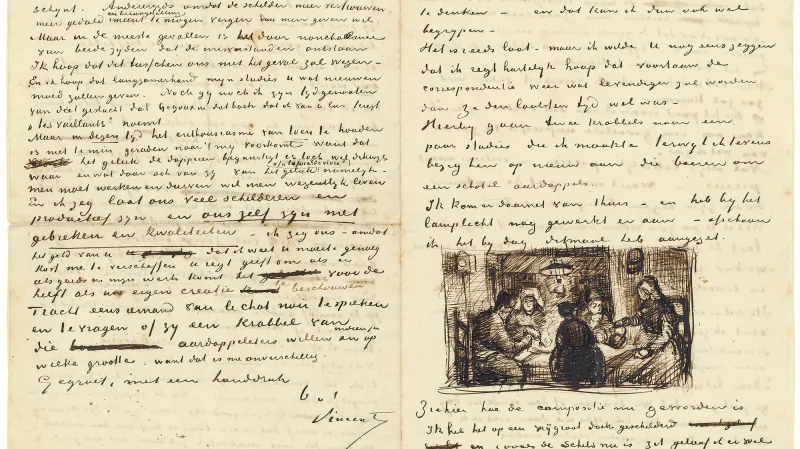 schynt. Anderzyds omdat de schilders meer vertrouwen
en belangstelling
meer geduld meent te mogen vergen van men geven wil
Maar in de meeste gevallen is het door nonchalance
van beide zyden dat de misverstanden ontstaan
Ik hoop dat dit tusschen ons met het geval zal wezen –
En ik hoop dat langzamerhand myn studies U wat nieuwen
moed zullen geven. Noch gy noch ik zyn tydgenooten
van dat geslacht dat
"les vaillants" noemt
Maar in dezen tyd het enthousiasme van toen te houden
is niettemin geraden naar 't my voorkomt want dat
het geluk de dapperen begunstigt is toch wel dikwyls
waar en wat daar ook van zy van het geluk namelyk –
men moet werken en durven wil men wezentlyk leven
En ik zeg laat ons veel schilderen en
productief zyn en ons zelf zyn met
gebreken en kwaliteiten – ik zeg ons – omdat
het geld van U dat ik weet U moeite genoeg
kost me te verschaffen U regt geeft om als er
iets goeds in myn werk komt het voor de
helft als uw eigen creatie te beschouwen
Tracht eens iemand van le chat noir te spreken
en te vragen of zy een krabbel van
die aardappeleters willen en op
welke grootte. want dat is me onverschillig
Gegroet, met een handdruk
Vincent
te denken – en dat kan ik dan ook wel
begrypen –
Het is reeds laat – maar ik wilde U nog eens zeggen
dat ik regt hartelyk hoop dat voortaan de
correspondentie weer wat levendiger zal worden
dan ze den laatsten tyd wel was –
Hierby gaan twee krabbels naar een
paar studies die ik maakte terwyl ik tevens
bezig ben op nieuw aan die boeren om
een schotel aardappels.
Ik kom er daarnet van thuis – en heb by het
lamplicht nog gewerkt er aan – ofschoon
ik het by dag ditmaal heb aangezet.
Ziehier hoe de compositie nu geworden is
Ik heb het op een vry groot doek geschilderd
en zooals de schets nu is zit geloof ik er wel